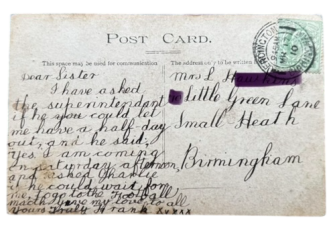 POST CARD.
This space may be used for communication
The address only to be written
Dear Sister
I have asked
the superintendant
if he you could let
me have a half day
out, and he said,
Yes I am coming
on Saturday afternoon,
and asked Charlie
if he could wait for
me to go to the Football
match give my love to all
Yours Truly Frank xxxxx
Mrs L
Little Green Lane
Small Heath
Birmingham